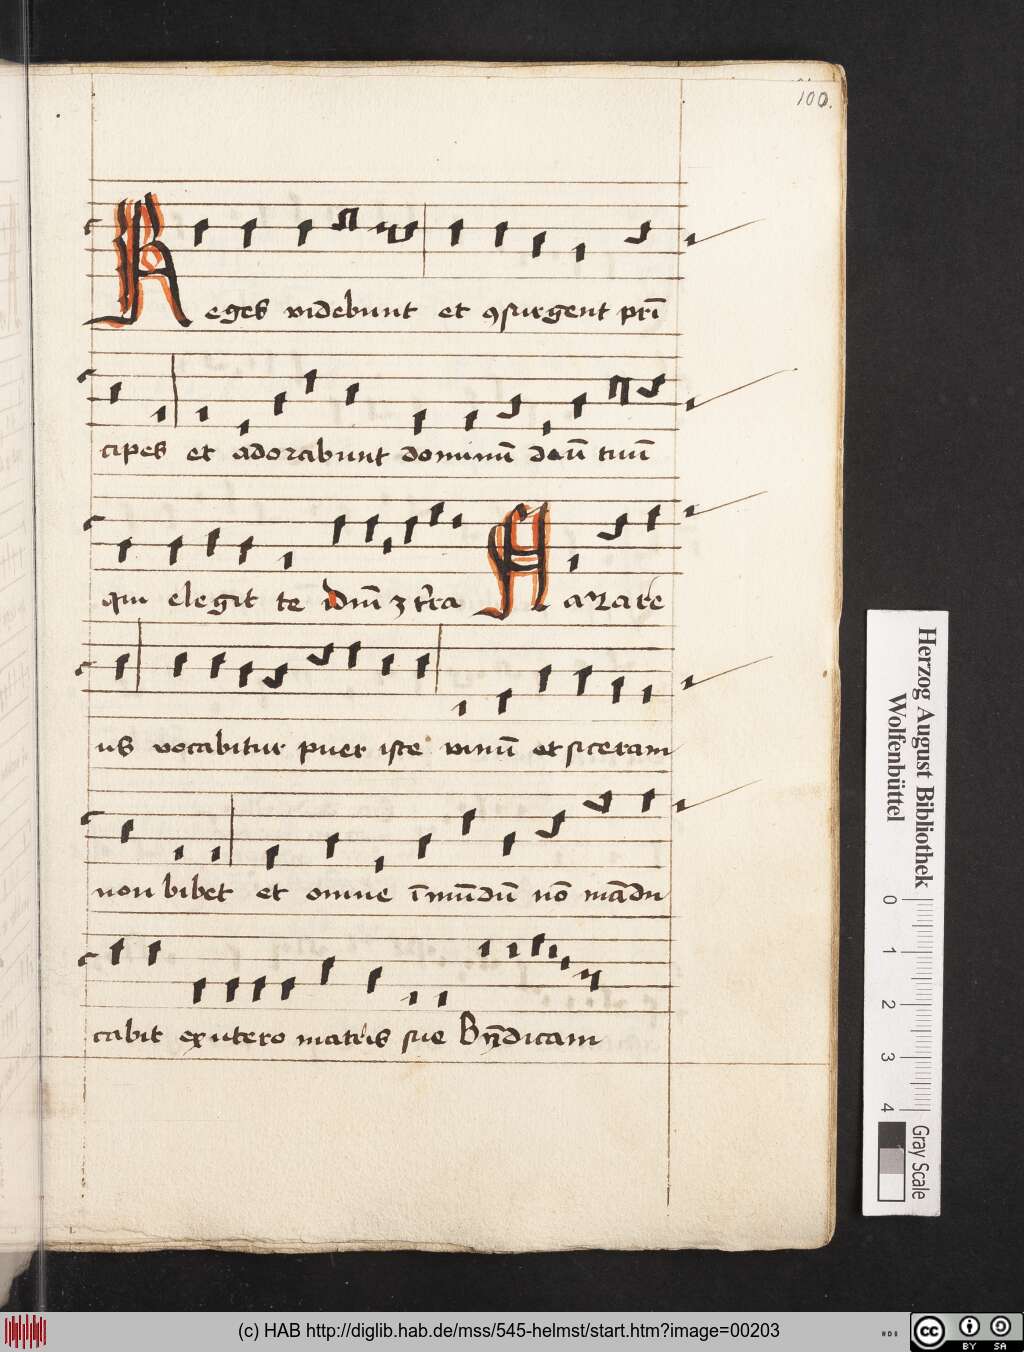 100.
Reges videbunt et ꝯsurgent prī
cipes et adorabunt dominū deū tuū
qui elegit te Nazare
us vocabitur puer iste vinū et siceram
non bibet et omne īmūdū nō mādu
cabit ex utero matris sue Bn̄dicam
Herzog August Bibliothek
Wolfenbüttel
0 1 2 3 4
Gray Scale
(c) HAB http://diglib.hab.de/mss/545-helmst/start.htm?image=00203
cc BY SA